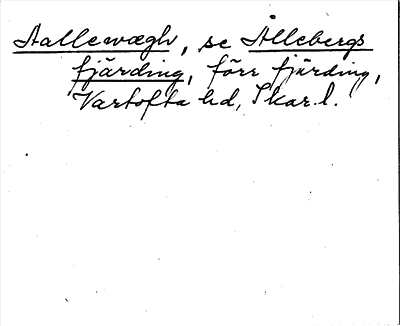 Aallewægh, se Ållebergs
fjärding, förr fjärding,
Vartofta hd, Skar. l.